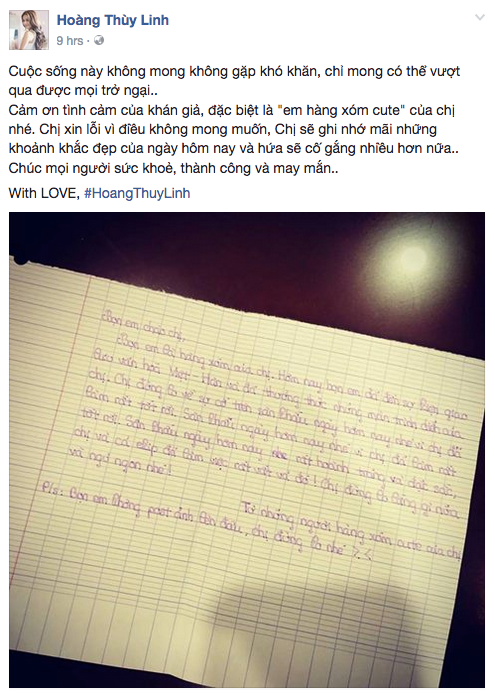 Hoàng Thùy Linh
9 hrs ·
Cuộc sống này không mong không gặp khó khăn, chỉ mong có thể vượt
qua được mọi trở ngại..
Cảm ơn tình cảm của khán giả, đặc biệt là "em hàng xóm cute" của chị
nhé. Chị xin lỗi vì điều không mong muốn, Chị sẽ ghi nhớ mãi những
khoảnh khắc đẹp của ngày hôm nay và hứa sẽ cố gắng nhiều hơn nữa..
Chúc mọi người sức khoẻ, thành công và may mắn..
With LOVE, #HoangThuyLinh
Bọn em chào chị,
Bọn em là hàng xóm của chị. Hôm nay bọn em đã đến sự kiện giao
lưu văn hoá Việt - Hàn và đã thưởng thức những màn trình diễn của
chị. Chị đừng lo về sự cố trên sân khấu ngày hôm nay nhé vì chị đã
làm rất tốt rồi. Sân khấu ngày hôm nay rất hoành tráng và đặc sắc,
chị và cả ekip đã làm việc rất vất vả đó! Chị đừng lo lắng gì nữa
và ngủ ngon nhé!
Từ những người hàng xóm cute của chị
P/s: Bọn em không post ảnh lên đâu, chị đừng lo nhé >.<